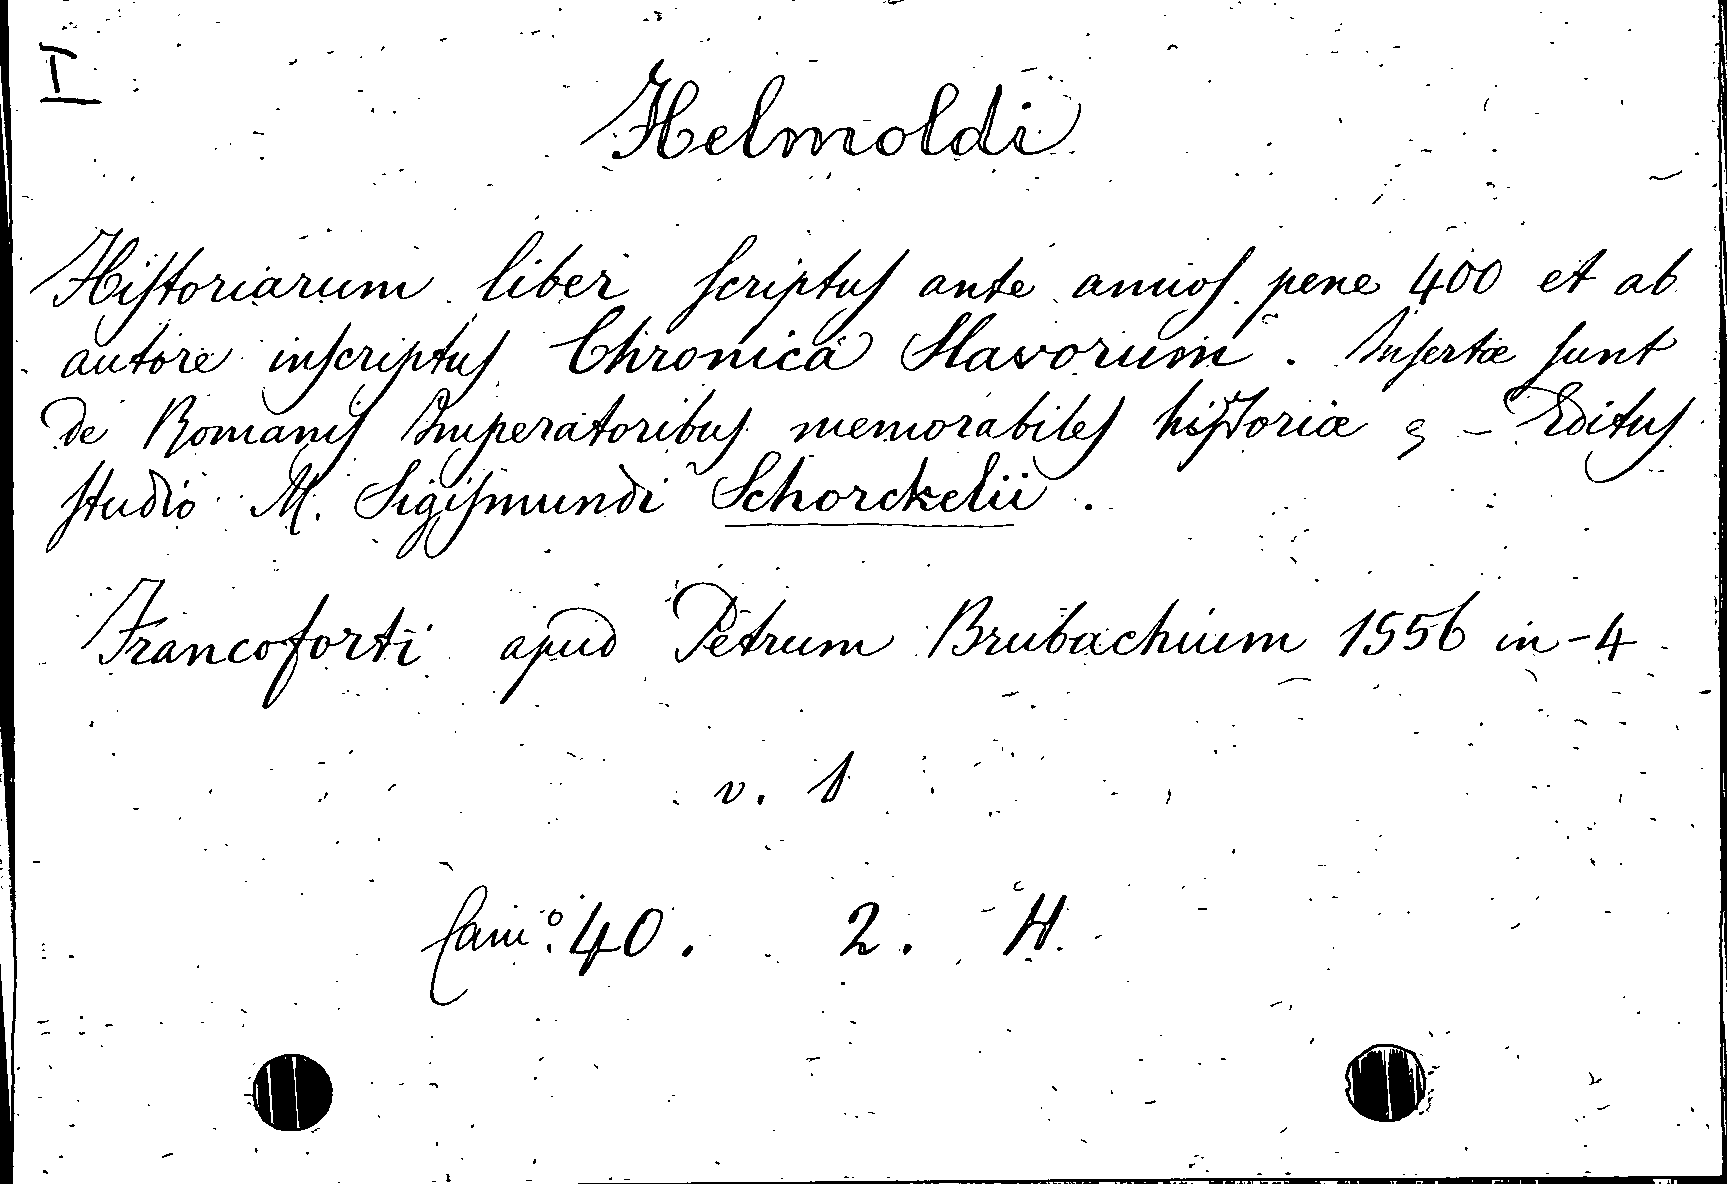 I
Helmoldi
Hiſtoriarum liber ſcriptuſ ante annoſ pene 400 et ab
autore inſcriptuſ Chronica Slavorum. Inſertæ ſunt
de Romaniſ Imperatoribuſ memorabileſ hiſtoriæ & - Edituſ
ſtudio M. Sigiſmundi Schorckelii.
Francoforti apud Petrum Brubachium 1556 in-4
v. 1
40. 2. H.